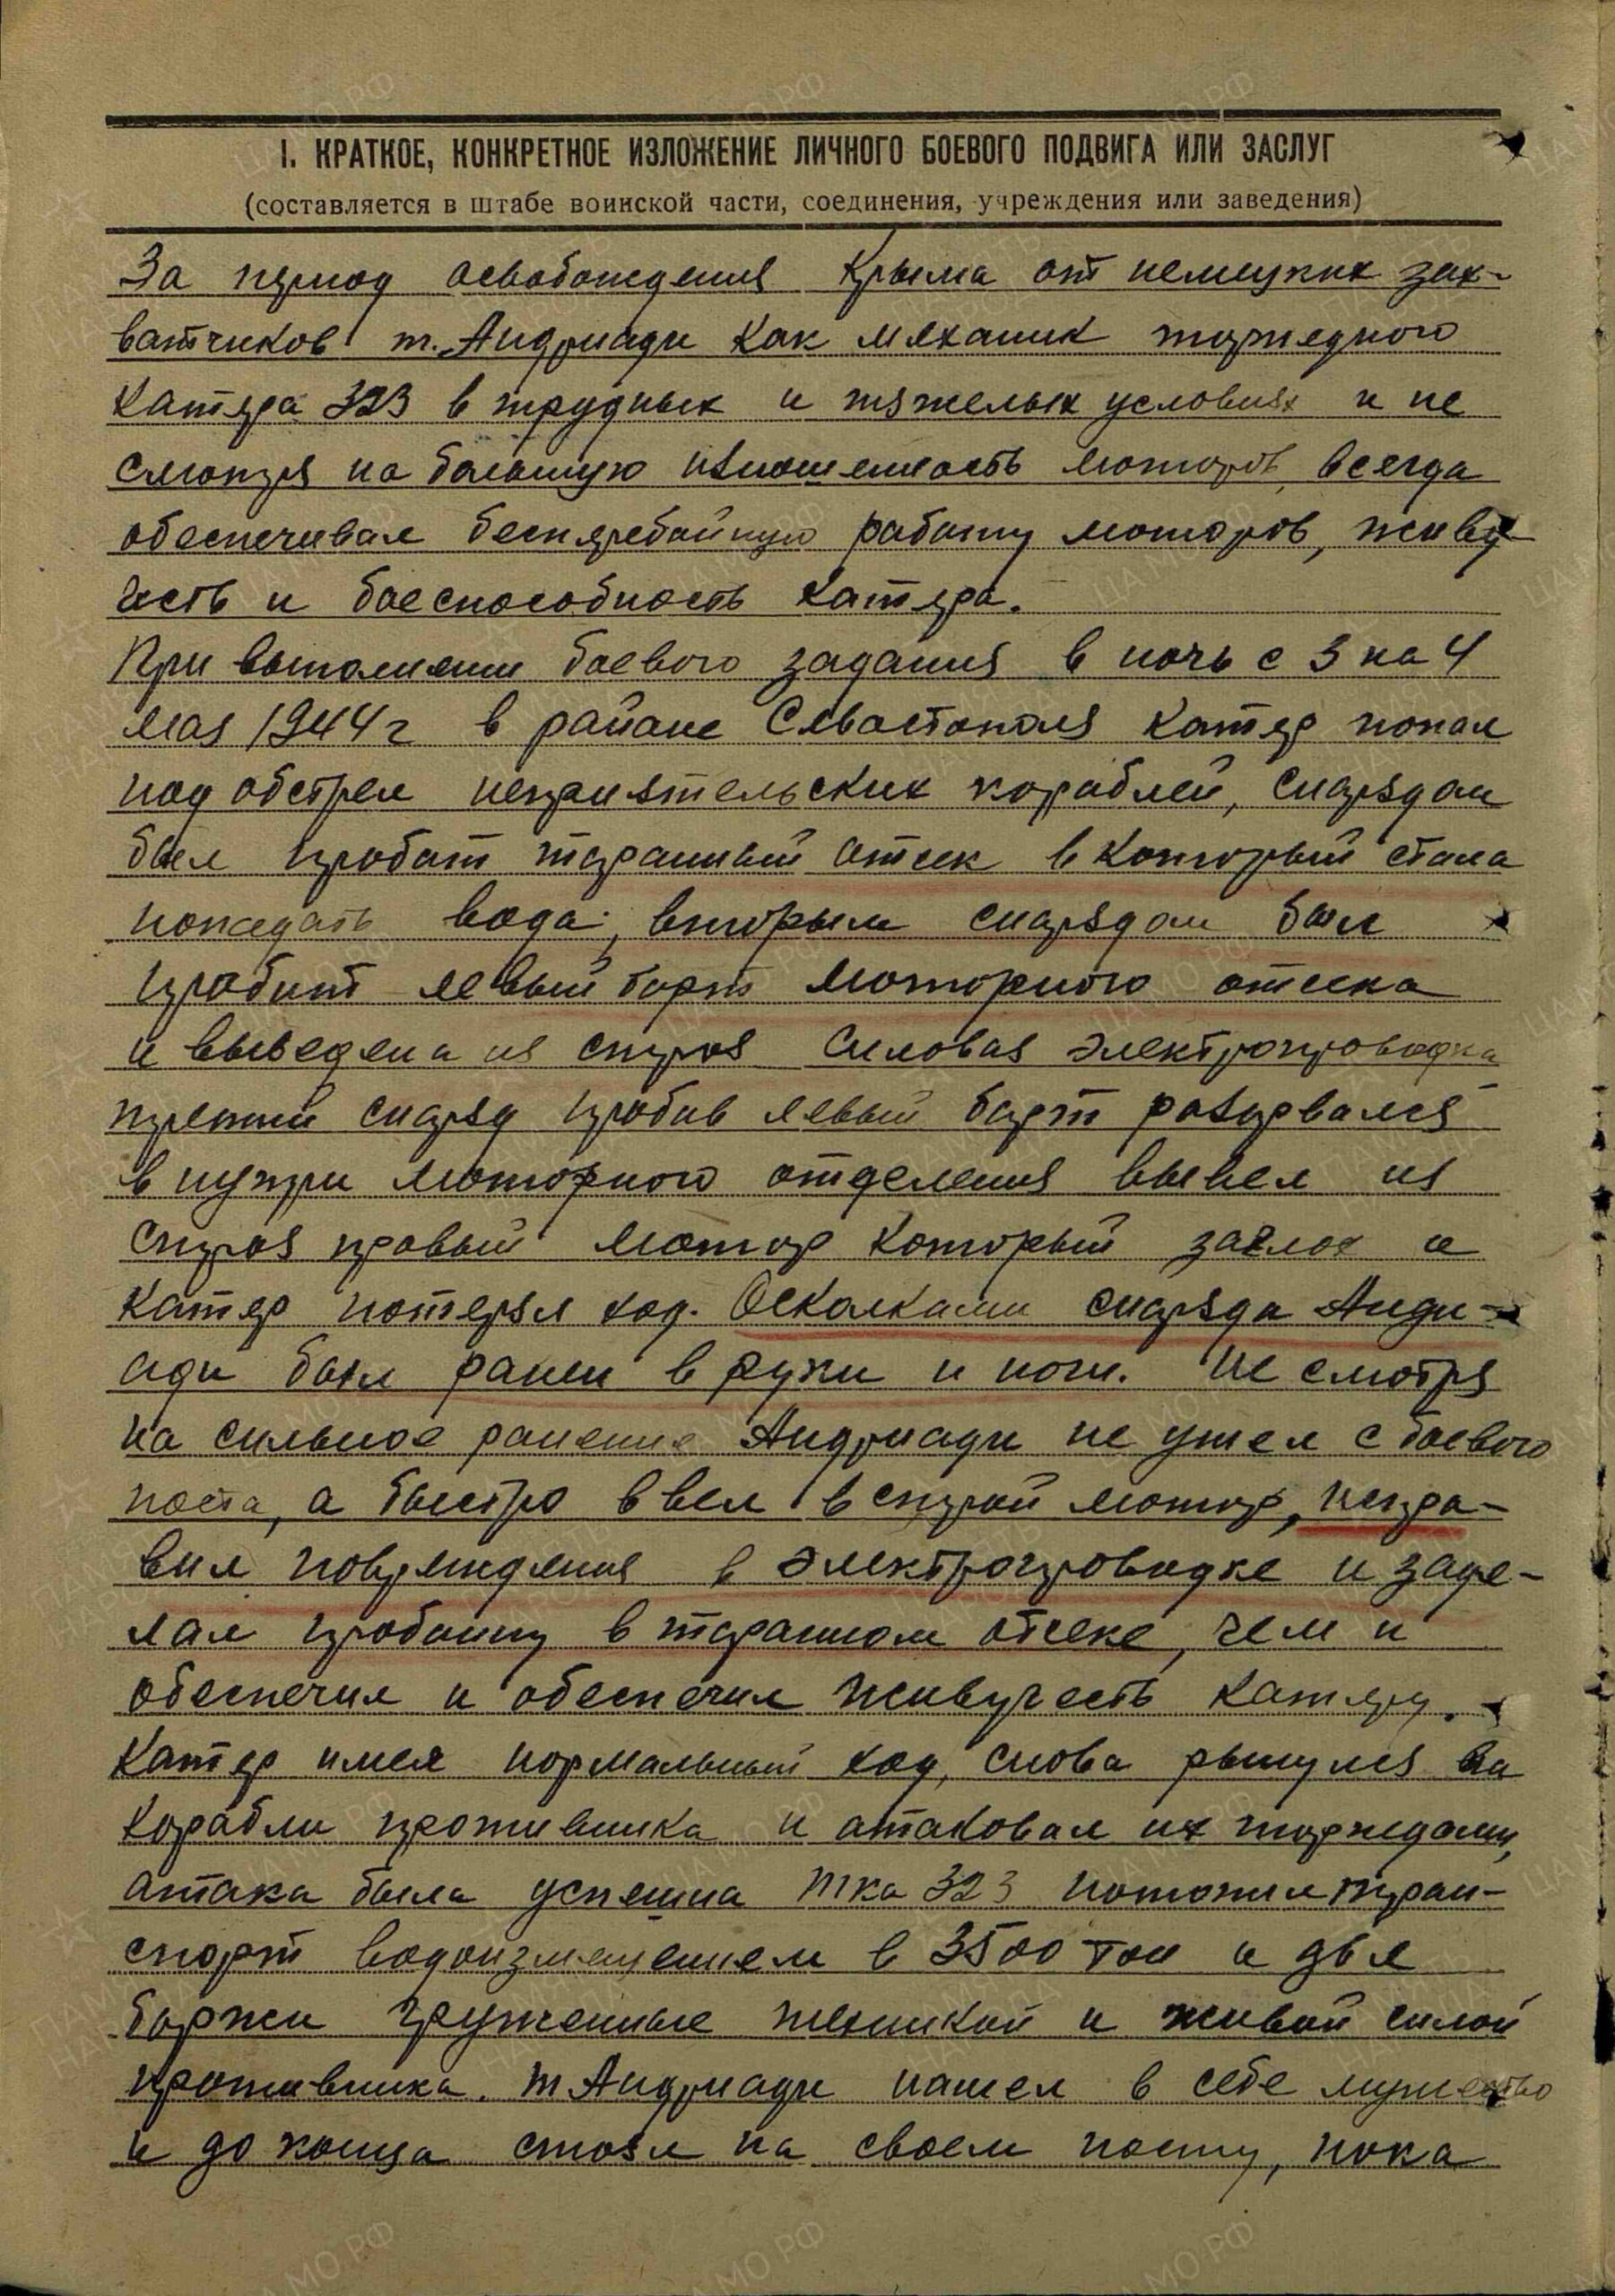 I. КРАТКОЕ, КОНКРЕТНОЕ ИЗЛОЖЕНИЕ ЛИЧНОГО БОЕВОГО ПОДВИГА ИЛИ ЗАСЛУГ
(составляется в штабе воинской части, соединения, учреждения или заведения)
За период освобождения Крыма от немецких зах-
ватчиков т. Андриади как механик торпедного
катера 323 в трудных и тяжелых условиях и не
смотря на большую изношенность моторов, всегда
обеспечивал бесперебойную работу моторов, живу-
честь и боеспособность катера.
При выполнении боевого задания в ночь с 3 на 4
мая 1944 г в районе Севастополя катер попал
под обстрел неприятельских кораблей, снарядом
был пробит таранный отсек в который стала
попадать вода; вторым снарядом был
пробит левый борт моторного отсека
и выведена из строя силовая электропроводка
третий снаряд пробив левый борт разорвался
в нутри моторного отделения вывел из
строя правый мотор который заглох и
катер потерял ход. Осколками снаряда Андри-
ади был ранен в руки и ноги. Не смотря
на сильное ранение Андриади не ушел с боевого
поста, а быстро ввел в строй мотор, испра-
вил повреждения в электропроводке и заде-
лал пробоину в таранном отсеке, чем и
обеспечил и обеспечил живучесть катеру.
Катер имея нормальный ход, снова рынулся на
корабли противника и атаковал их торпедами,
атака была успешна тка 323 потопил тран-
спорт водоизмещением в 3500 тон и две
баржи груженные техникой и живой силой
противника. т Андриади нашел в себе мужество
и до конца стоял на своем посту, пока
ЦА МО РФ
ПАМЯТЬ НАРОДА